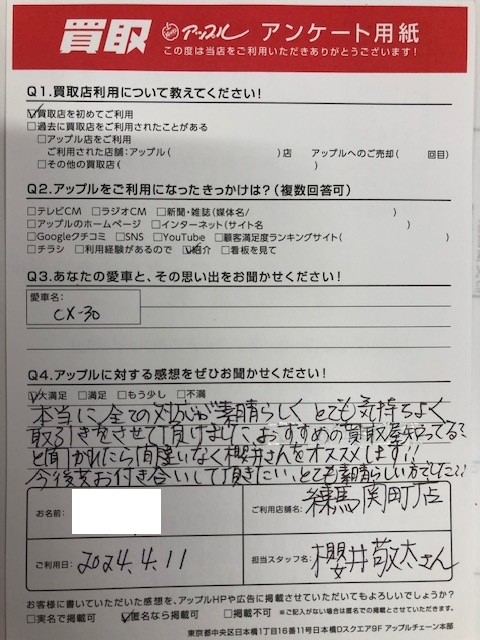 買取 アップル アンケート用紙
この度は当店をご利用いただきありがとうございます!
Q1.買取店利用について教えてください!
☑買取店を初めてご利用
□過去に買取店をご利用されたことがある
□アップル店をご利用
ご利用された店舗:アップル( )店 アップルへのご売却( 回目)
□その他の買取店( )
Q2.アップルをご利用になったきっかけは?(複数回答可)
□テレビCM □ラジオCM □新聞・雑誌(媒体名/ )
□アップルのホームページ □インターネット(サイト名 )
□Googleクチコミ □SNS □YouTube □顧客満足度ランキングサイト( )
□チラシ □利用経験があるので ☑紹介 □看板を見て
Q3.あなたの愛車と、その思い出をお聞かせください!
愛車名:
CX-30
Q4.アップルに対する感想をぜひお聞かせください!
☑大満足 □満足 □もう少し □不満
本当に全ての対応が素晴らしく とても気持ちよく
取引きをさせて頂けました、おすすめの買取屋やってる?
と聞かれたら間違いなく櫻井さんをオススメします!!
今後もお付き合いして頂きたい、とても素晴らしい方でした!!
お名前:
ご利用店舗名: 練馬関町店
ご利用日: 2024.4.11
担当スタッフ名: 櫻井敬太さん
お客様に書いていただいた感想を、アップルHPや広告に掲載させていただいてもよろしいでしょうか?
□実名で掲載可 ☑匿名なら掲載可 □掲載不可 ※ご記入がない場合は匿名での掲載とさせていただきます。
東京都中央区日本橋1丁目16番11号 日本橋Dスクエア9F アップルチェーン本部